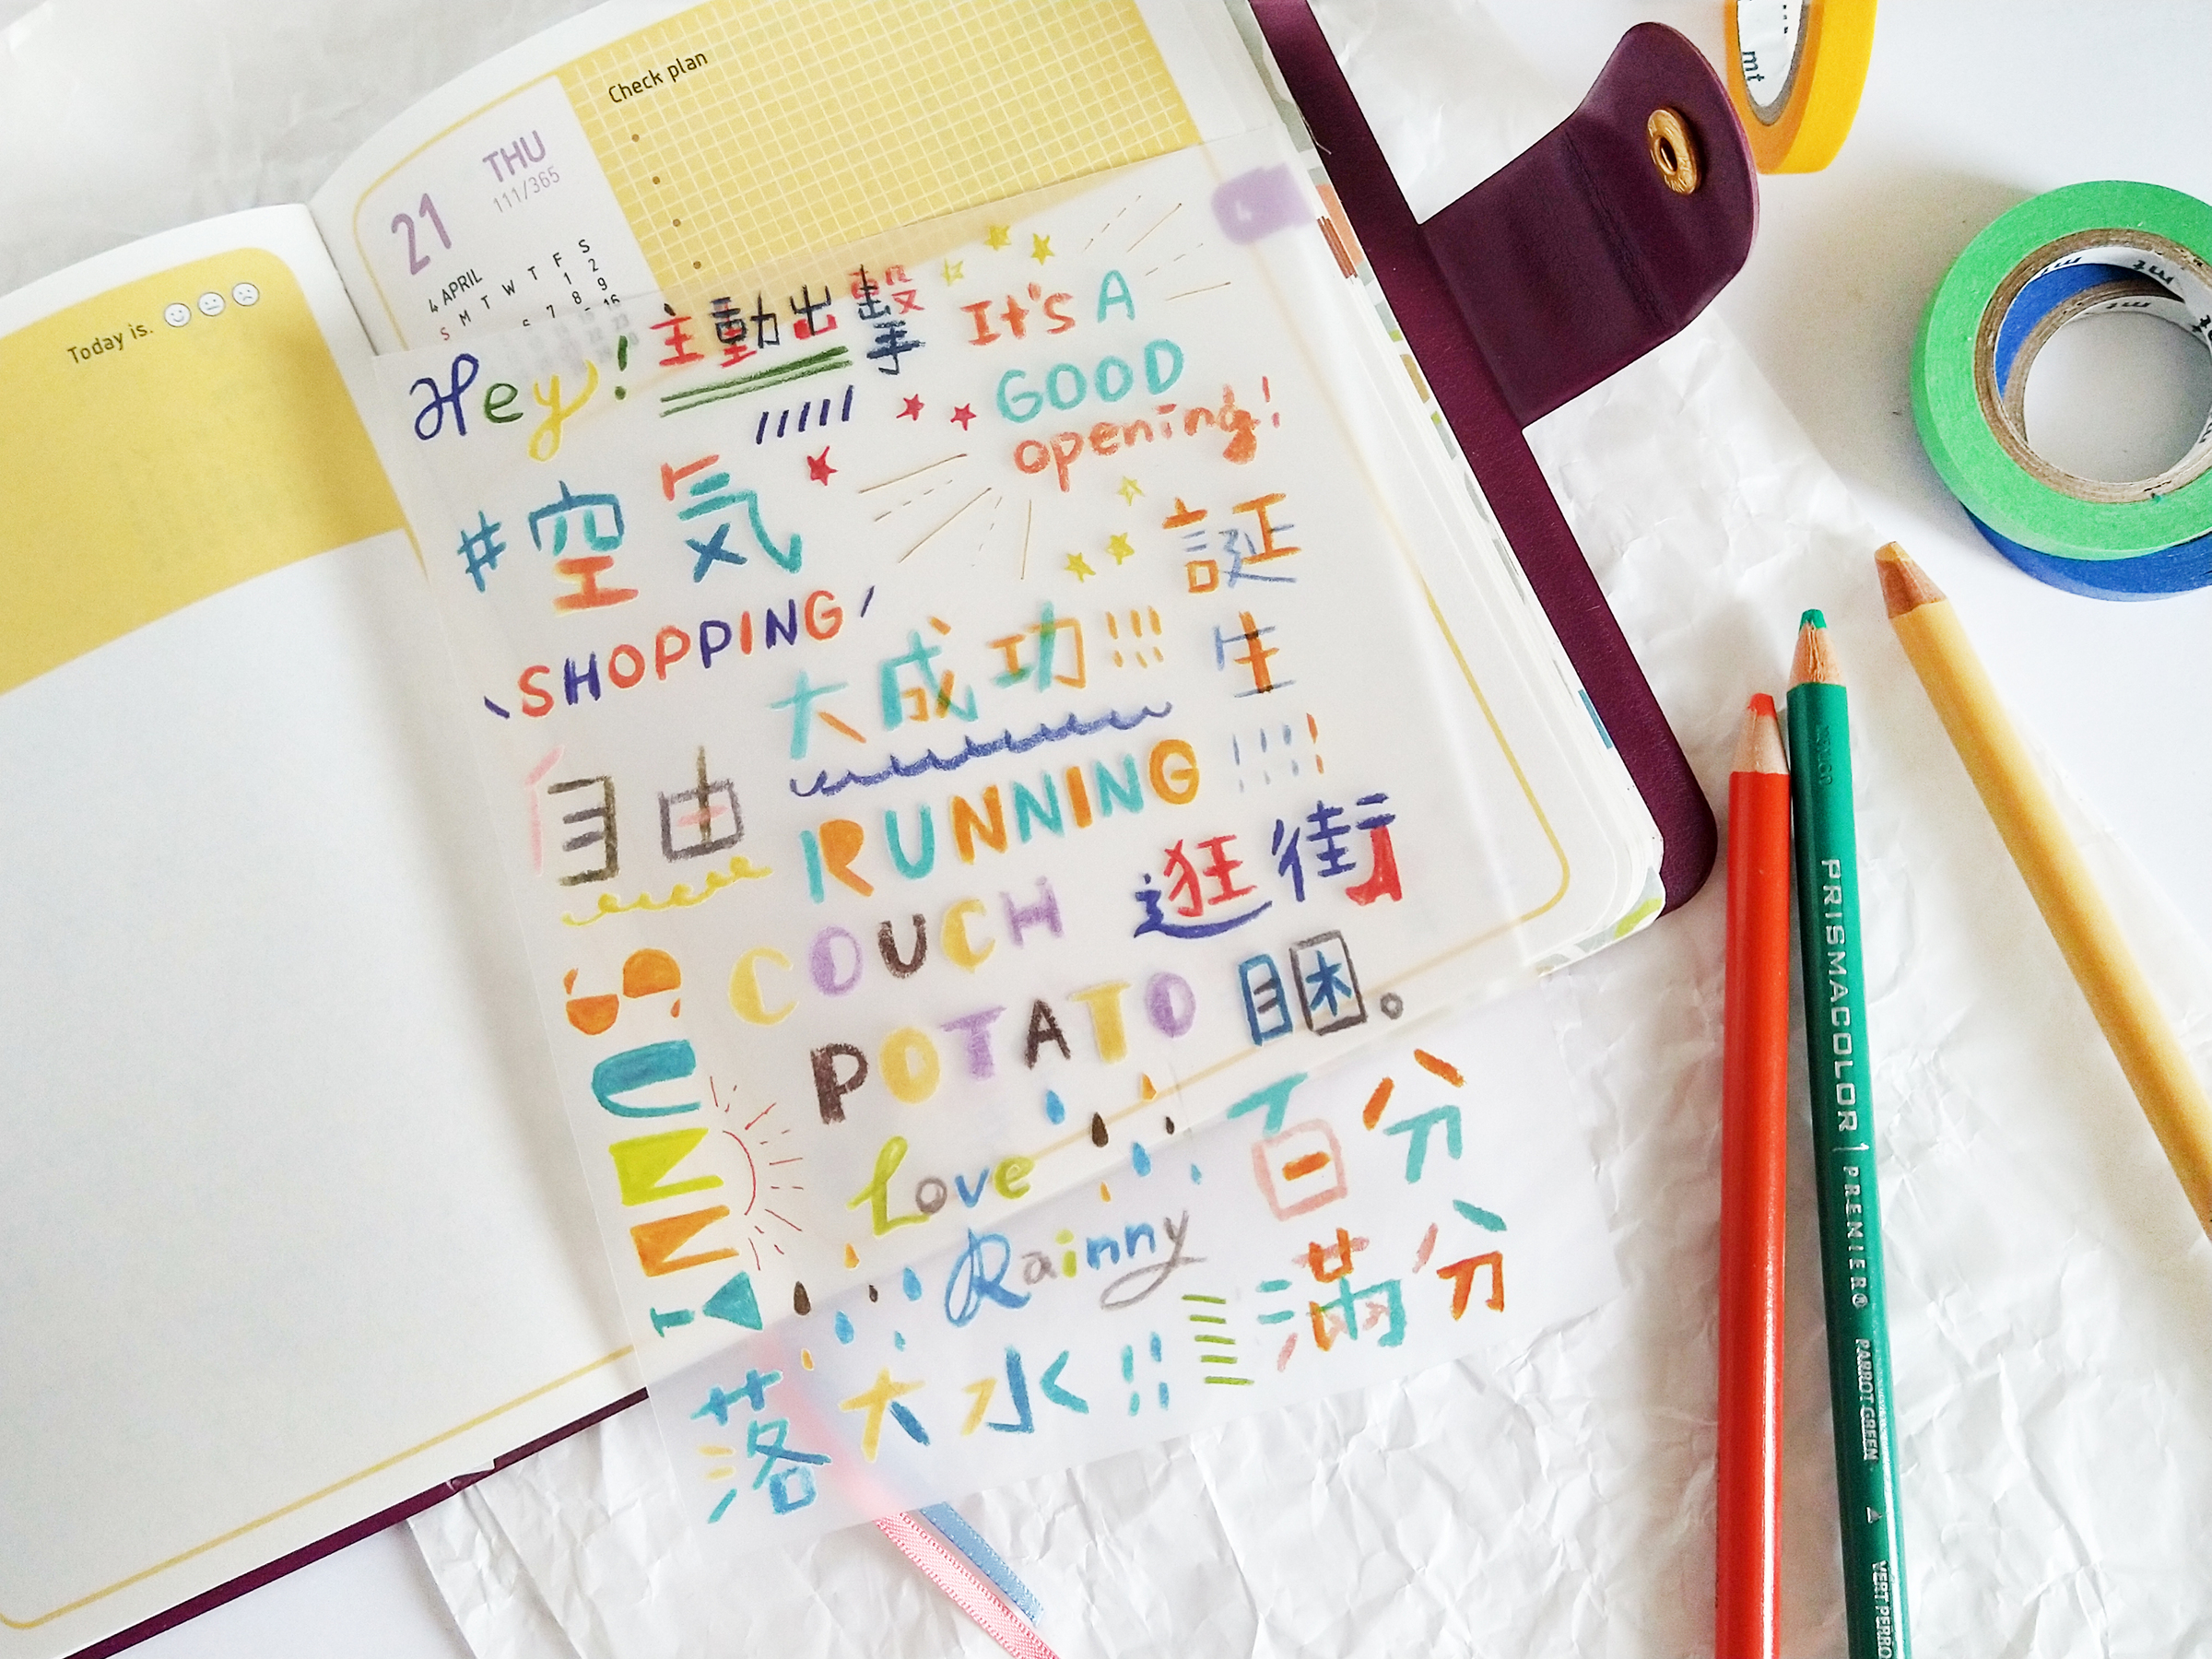 Check plan
THU
111/365
21
4 APRIL
S M T W T F S
1 2
7 8 9
16
Today is.
Hey! 主動出擊
It's A
GOOD
opening!
#空気
SHOPPING
誕生!!!!
大成功!!!
自由
RUNNING
逛街
COUCH
POTATO
睏。
SUNNY
Love
Rainny
百分
滿分
落大水!!
mt
mt
mt
PRISMACOLOR PREMIER® PARROT GREEN